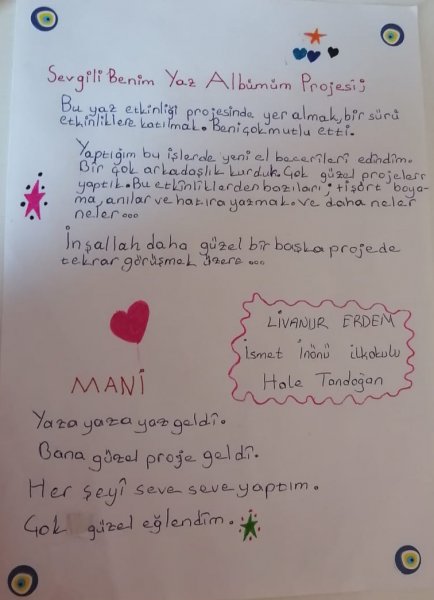 Sevgili Benim Yaz Albümüm Projesi;
Bu yaz etkinliği projesinde yer almak, bir sürü
etkinliklere katılmak. Beni çok mutlu etti.
Yaptığım bu işlerde yeni el becerileri edindim.
Bir çok arkadaşlık kurduk. Çok güzel projeler
yaptık. Bu etkinliklerden bazıları; tişört boya-
ma, anılar ve hatıra yazmak. ve daha neler
neler...
İnşallah daha güzel bir başka projede
tekrar görüşmek üzere...
LİVANUR ERDEM
İsmet İnönü ilkokulu
Hale Tandoğan
MANİ
Yaza yaza yaz geldi.
Bana güzel proje geldi.
Her şeyi seve seve yaptım.
Çok güzel eğlendim.